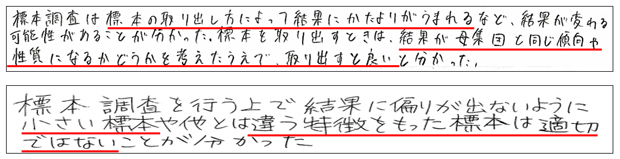 標本調査は標本の取り出し方によって結果にかたよりがうまれるなど、結果が変わる
可能性があることが分かった。標本を取り出すときは、結果が母集団と同じ傾向や
性質になるかどうかを考えたうえで、取り出すと良いと分かった。
標本調査を行う上で結果に偏りが出ないように
小さい標本や他とは違う特徴をもった標本は適切
ではないことが分かった